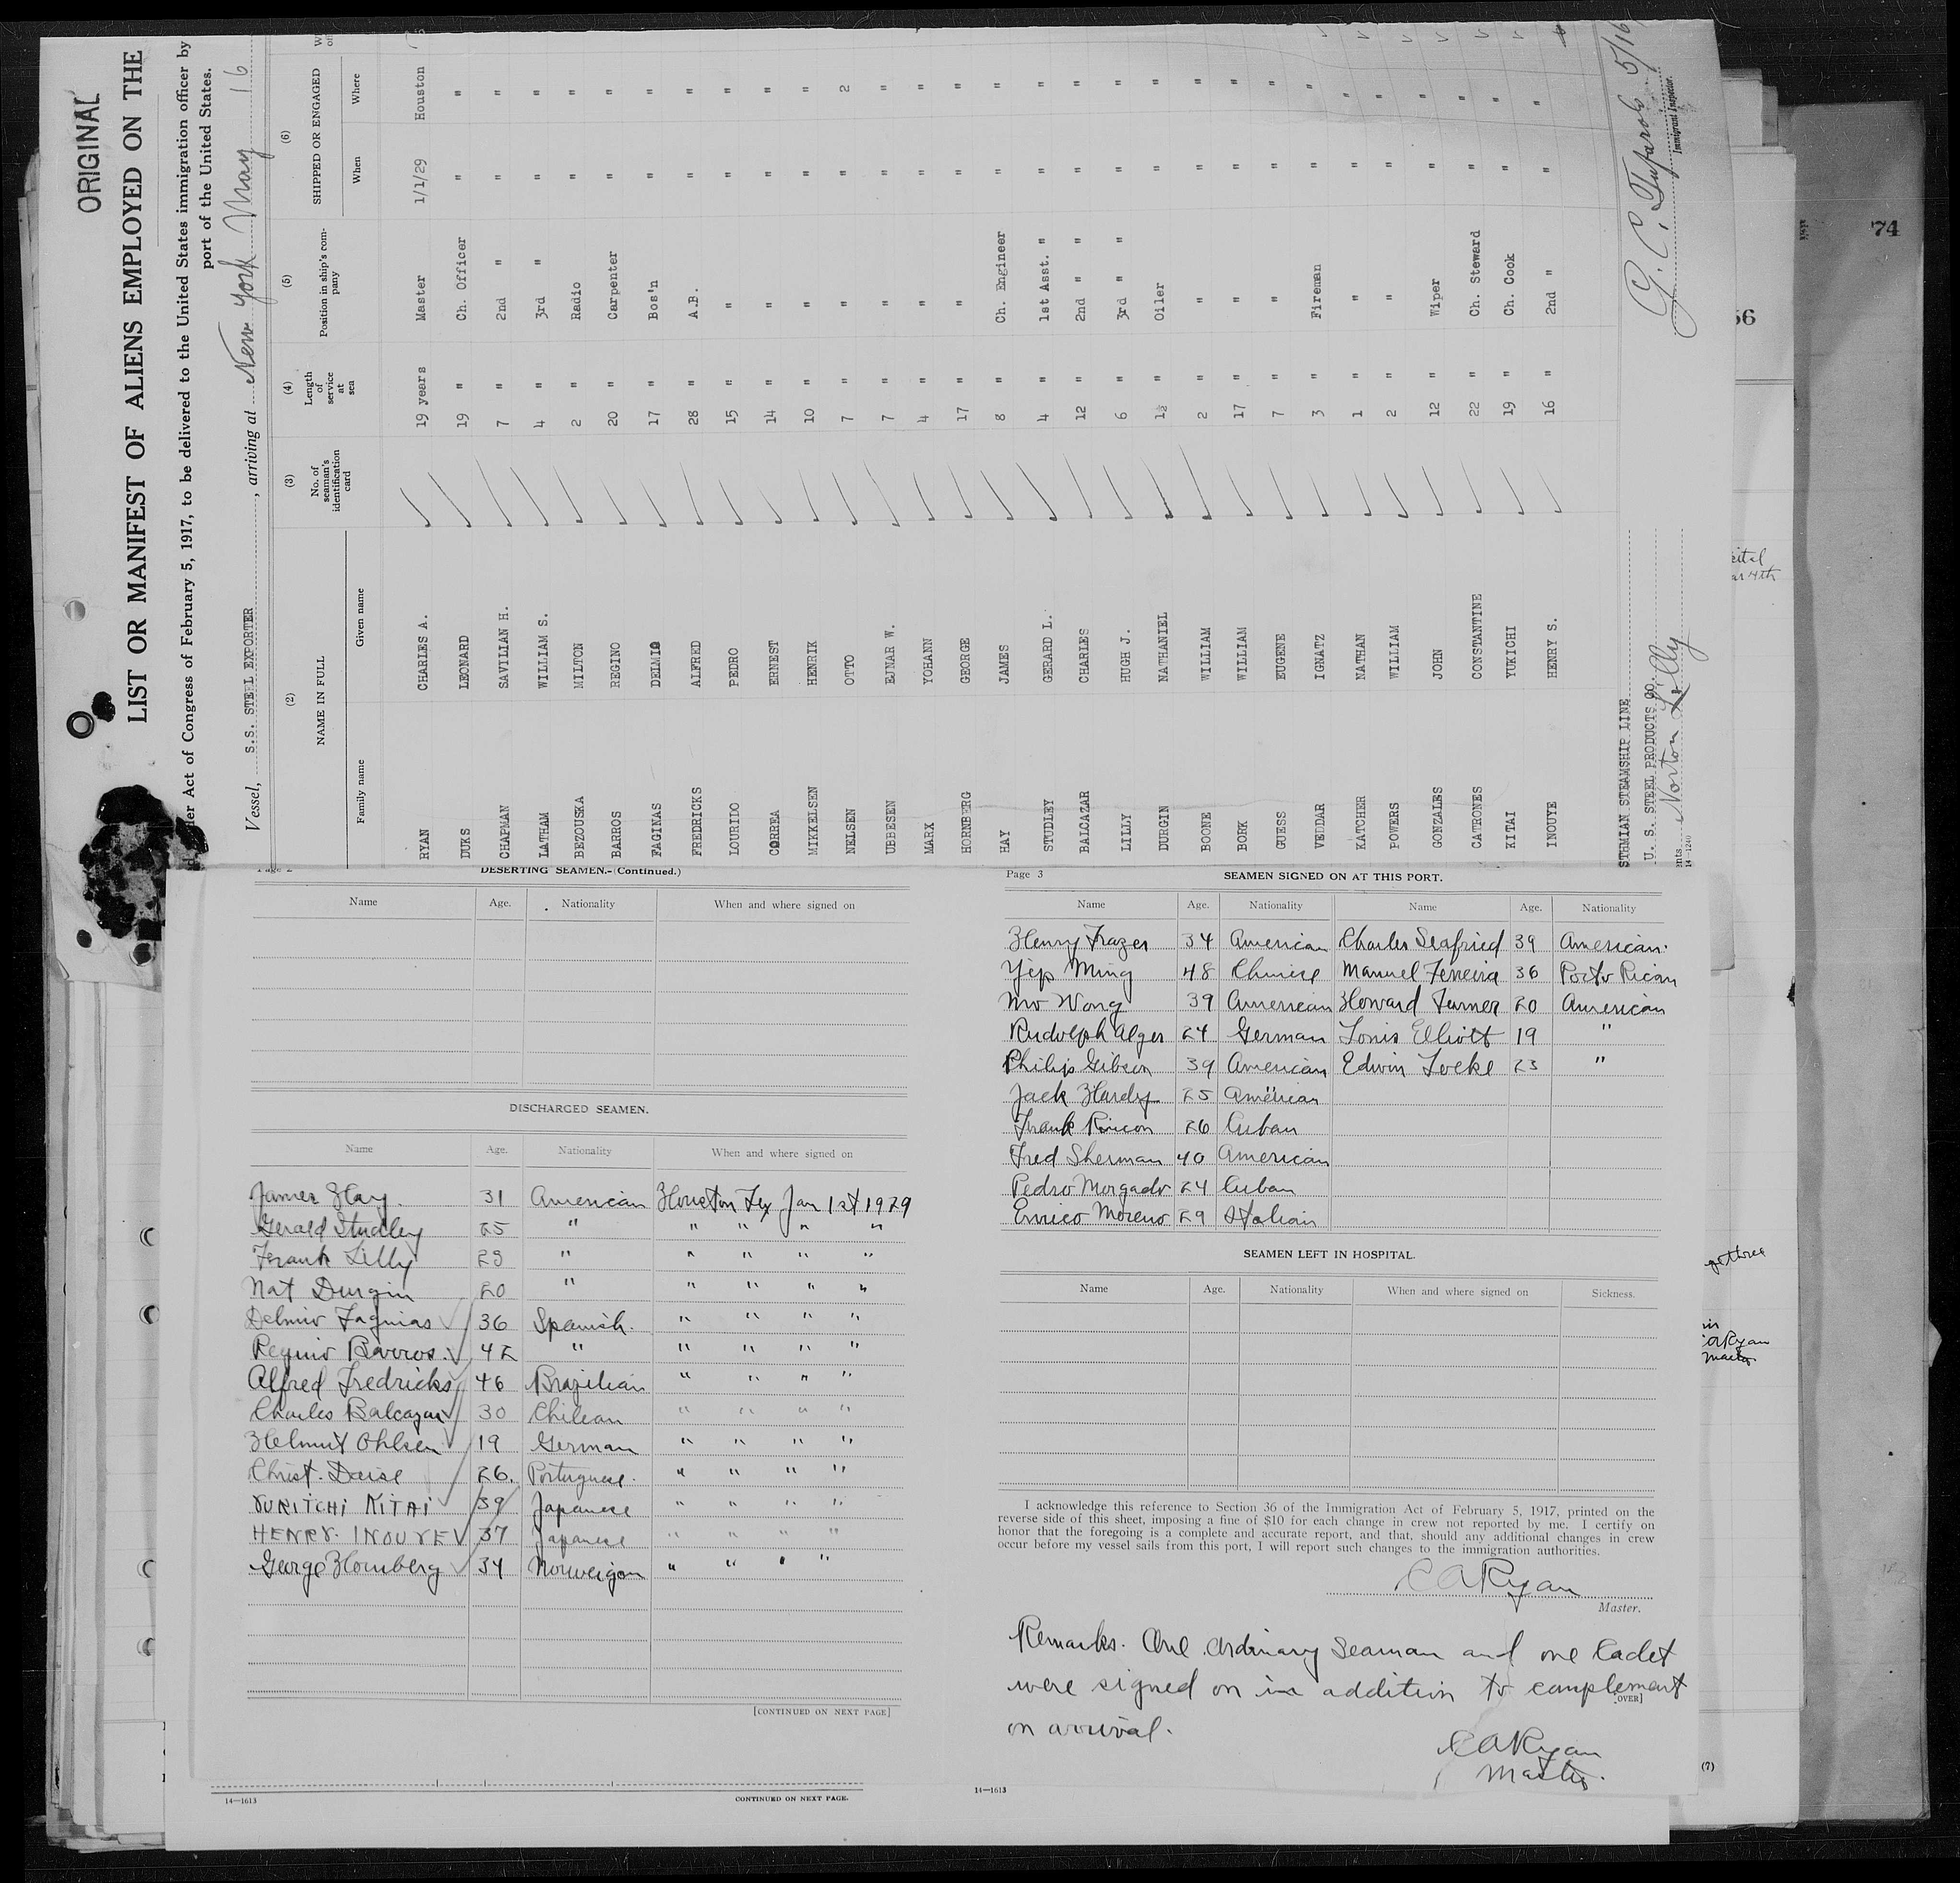 ORIGINAL
LIST OR MANIFEST OF ALIENS EMPLOYED ON THE
der Act of Congress of February 5, 1917, to be delivered to the United States immigration officer by
port of the United States.
Vessel, S.S. STEEL EXPORTER, arriving at New York May 16
(2) (3) (4) (5) (6)
NAME IN FULL No. of seaman's identification card Length of service at sea Position in ship's company SHIPPED OR ENGAGED
Family name Given name When Where
RYAN CHARLES A. 19 years Master 1/1/29 Houston
DUKS LEONARD 19 " Ch. Officer " "
CHAPMAN SAVILIAN H. 7 " 2nd " " "
LATHAM WILLIAM S. 4 " 3rd " " "
BEZOUSKA MILTON 2 " Radio " "
BARROS REGINO 20 " Carpenter " "
FAGINAS DELMIO 17 " Bos'n " "
FREDRICKS ALFRED 28 " A.B. " "
LOURIDO PEDRO 15 " " " "
CORREA ERNEST 14 " " " "
MIKKELSEN HENRIK 10 " " " "
NELSEN OTTO 7 " " " 2
UBBESEN EJNAR W. 7 " " " "
MARX YOHANN 4 " " " "
HORNBERG GEORGE 17 " " " "
HAY JAMES 8 " Ch. Engineer " "
STUDLEY GERARD L. 4 " 1st Asst. " " "
BALCAZAR CHARLES 12 " 2nd " " " "
LILLY HUGH J. 6 " 3rd " " " "
DURGIN NATHANIEL " Oiler " "
BOONE WILLIAM 2 " " " "
BORK WILLIAM 17 " " " "
GUESS EUGENE 7 " " " "
VEDDAR IGNATZ 3 " Fireman " "
KATCHER NATHAN 1 " " " "
POWERS WILLIAM 2 " " " "
GONZALES JOHN 12 " Wiper " "
CATRONES CONSTANTINE 22 " Ch. Steward " "
KITAI YUKICHI 19 " Ch. Cook " "
INOUYE HENRY S. 16 " 2nd " " "
STHMIAN STEAMSHIP LINE
U. S. STEEL PRODUCTS CO.
nts Norton Lilly
14-1240
5/16
Immigrant Inspector.
74
56
Page 2 DESERTING SEAMEN.-(Continued.)
Name Age. Nationality When and where signed on
DISCHARGED SEAMEN.
Name Age. Nationality When and where signed on
James Hay. 31 American Houston Tex Jan 1st 1929
Gerald Studley 25 " " " " "
Frank Lilly 23 " " " " "
Nat Durgin 20 " " " " "
Delmiro Faginas 36 Spanish. " " " "
Regino Barros. 42 " " " " "
Alfred Fredricks 46 Brazilian " " " "
Charles Balcazar 30 Chilean " " " "
Helmut Ohlsen 19 German " " " "
Christ. Daise 26. Portuguese. " " " "
YUKITCHI KITAI 39 Japanese " " " "
HENRY. INOUYE 37 Japanese " " " "
George Hornberg 34 Norweigan " " " "
[CONTINUED ON NEXT PAGE]
14—1613 CONTINUED ON NEXT PAGE.
Page 3 SEAMEN SIGNED ON AT THIS PORT.
Name Age. Nationality Name Age. Nationality
Henry Frazer 34 American Charles Seafried 39 American.
Yep Ming 48 Chinese Manuel Ferreira 36 Porto Rican
Mo Wong 39 American Howard Turner 20 American
Rudolph Alger 24 German Louis Elliott 19 "
Philip Gibson 39 American Edwin Locke 23 "
Jack Hardy 25 American
Frank Rincon 26 Cuban
Fred Sherman 40 American
Pedro Morgado 24 Cuban
Enrico Moreno 29 Italian
SEAMEN LEFT IN HOSPITAL.
Name Age. Nationality When and where signed on Sickness.
I acknowledge this reference to Section 36 of the Immigration Act of February 5, 1917, printed on the
reverse side of this sheet, imposing a fine of $10 for each change in crew not reported by me. I certify on
honor that the foregoing is a complete and accurate report, and that, should any additional changes in crew
occur before my vessel sails from this port, I will report such changes to the immigration authorities.
C A Ryan
Master.
Remarks. One Ordinary Seaman and one Cadet
were signed on in addition to complement
[OVER]
on arrival.
C A Ryan
Master.
14—1613
(7)